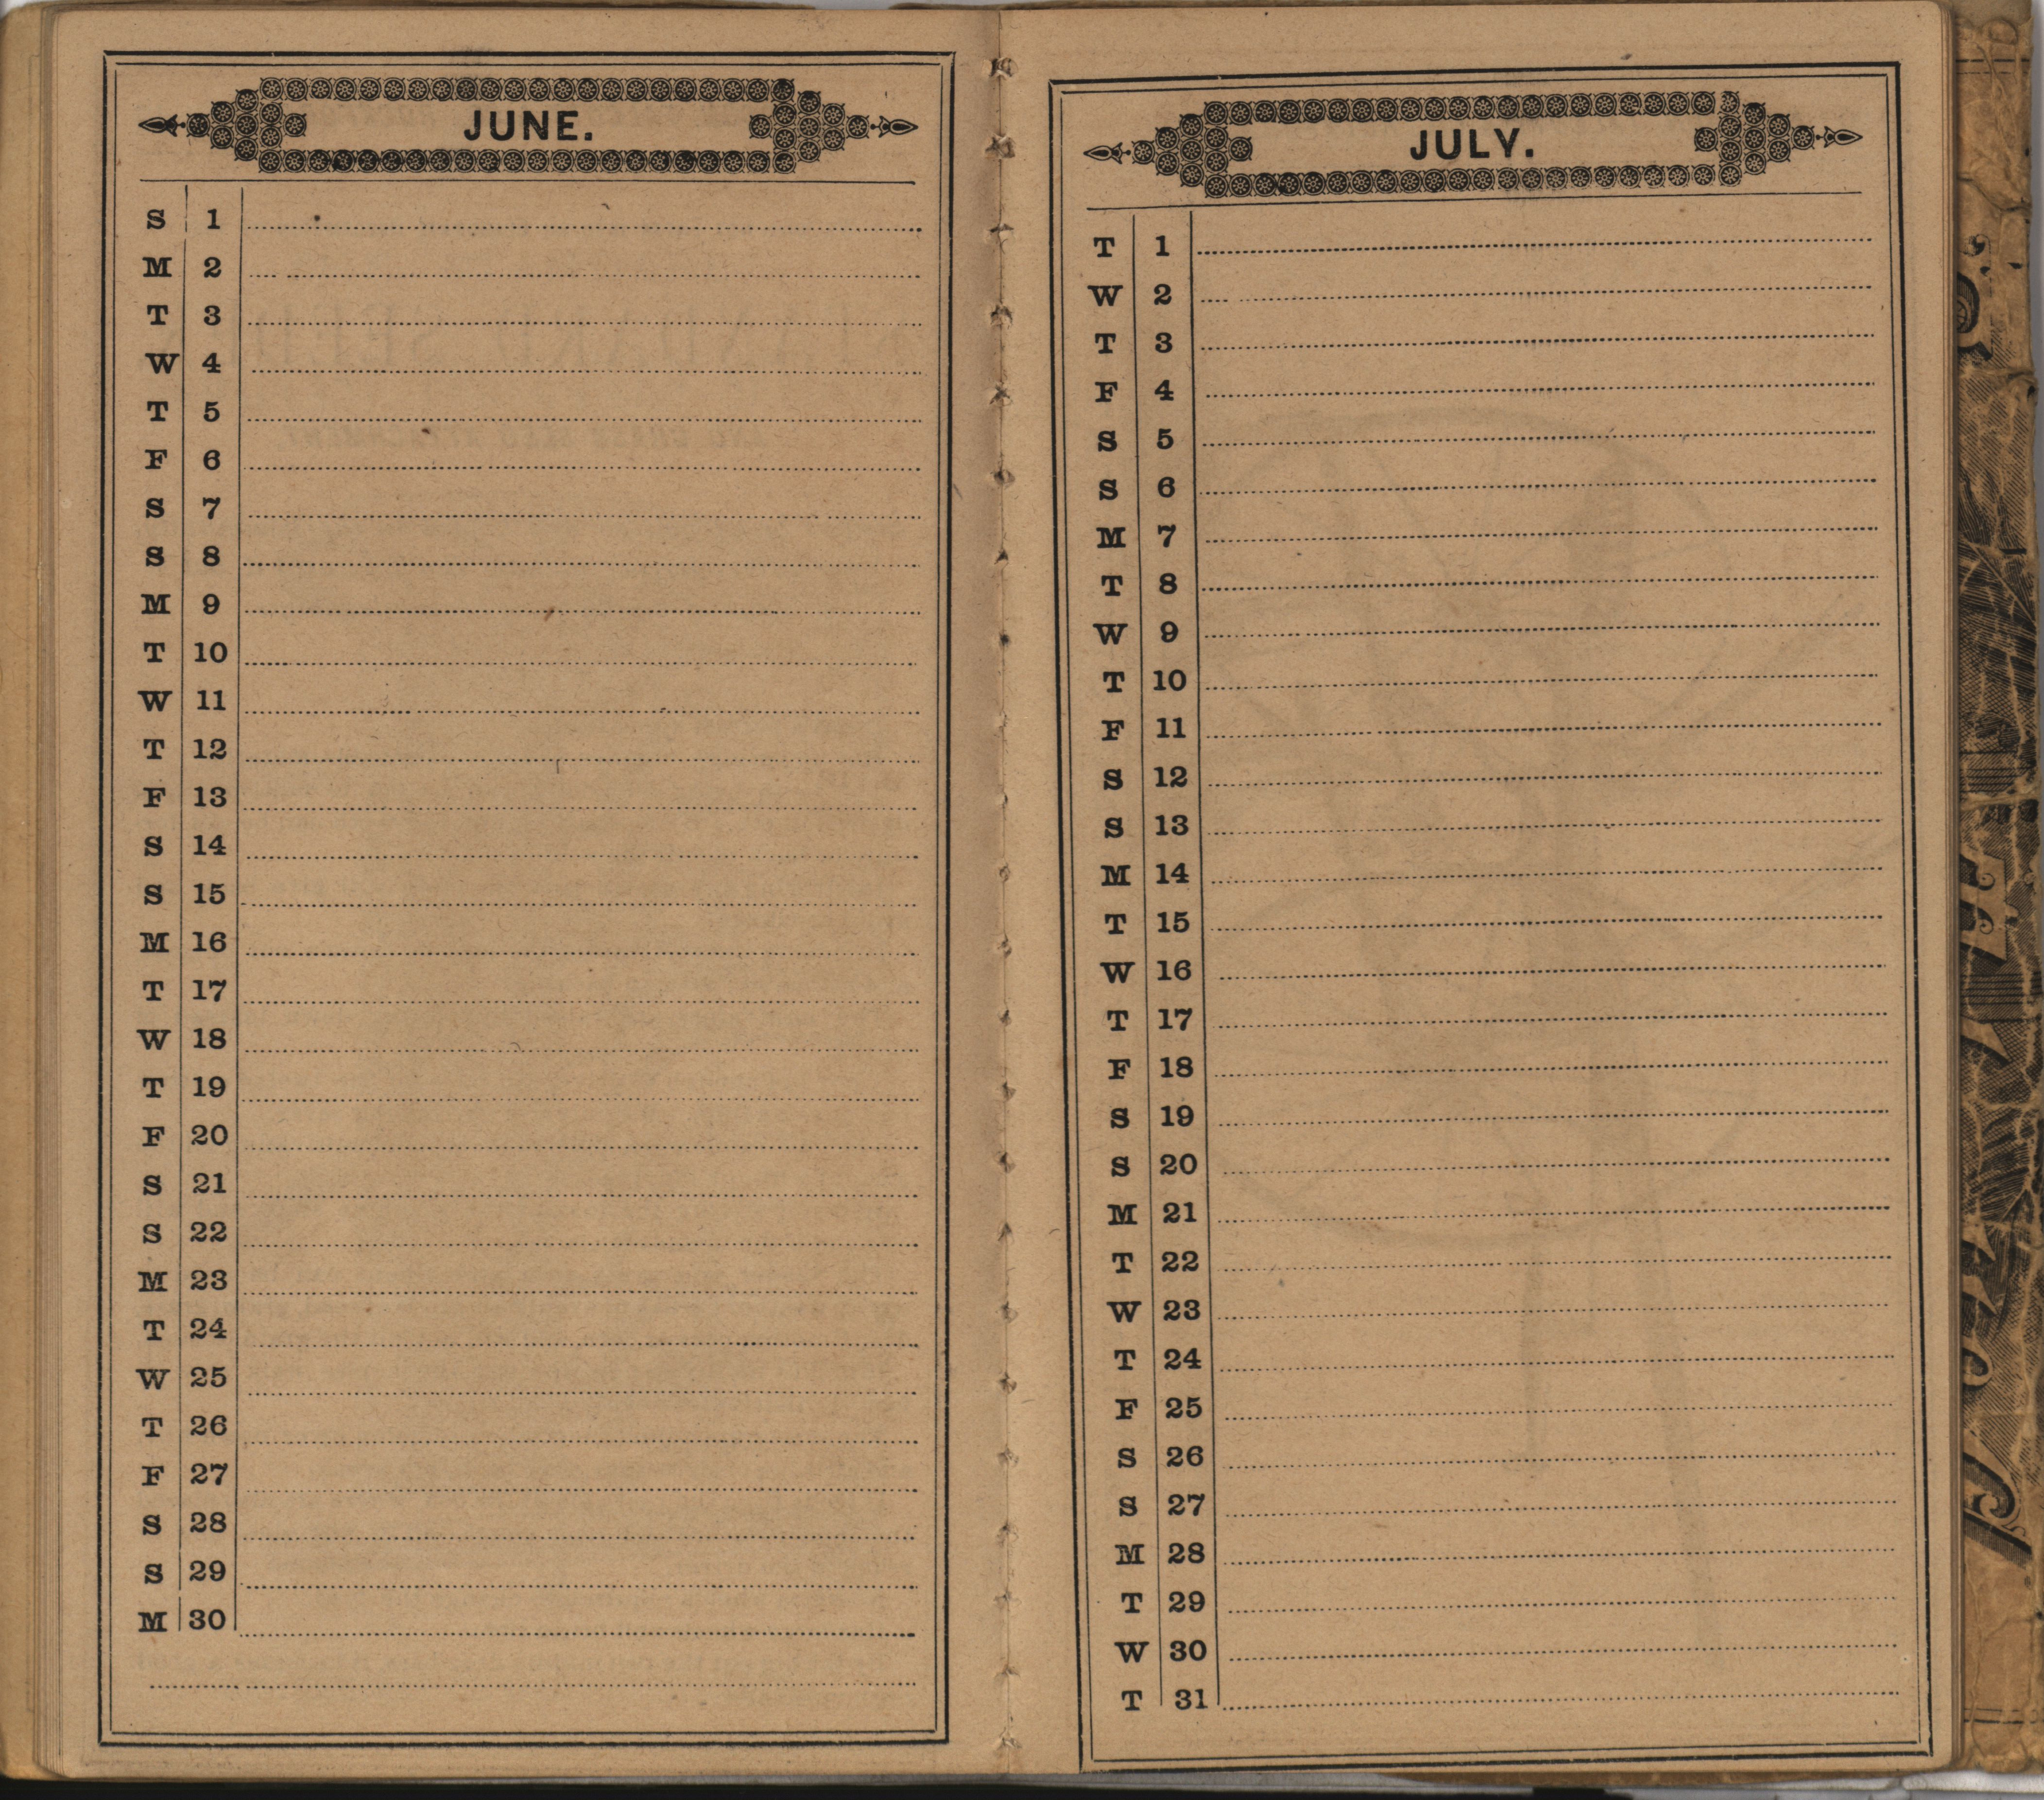 JUNE.
S 1
M 2
T 3
W 4
T 5
F 6
S 7
S 8
M 9
T 10
W 11
T 12
F 13
S 14
S 15
M 16
T 17
W 18
T 19
F 20
S 21
S 22
M 23
T 24
W 25
T 26
F 27
S 28
S 29
M 30
JULY.
T 1
W 2
T 3
F 4
S 5
S 6
M 7
T 8
W 9
T 10
F 11
S 12
S 13
M 14
T 15
W 16
T 17
F 18
S 19
S 20
M 21
T 22
W 23
T 24
F 25
S 26
S 27
M 28
T 29
W 30
T 31